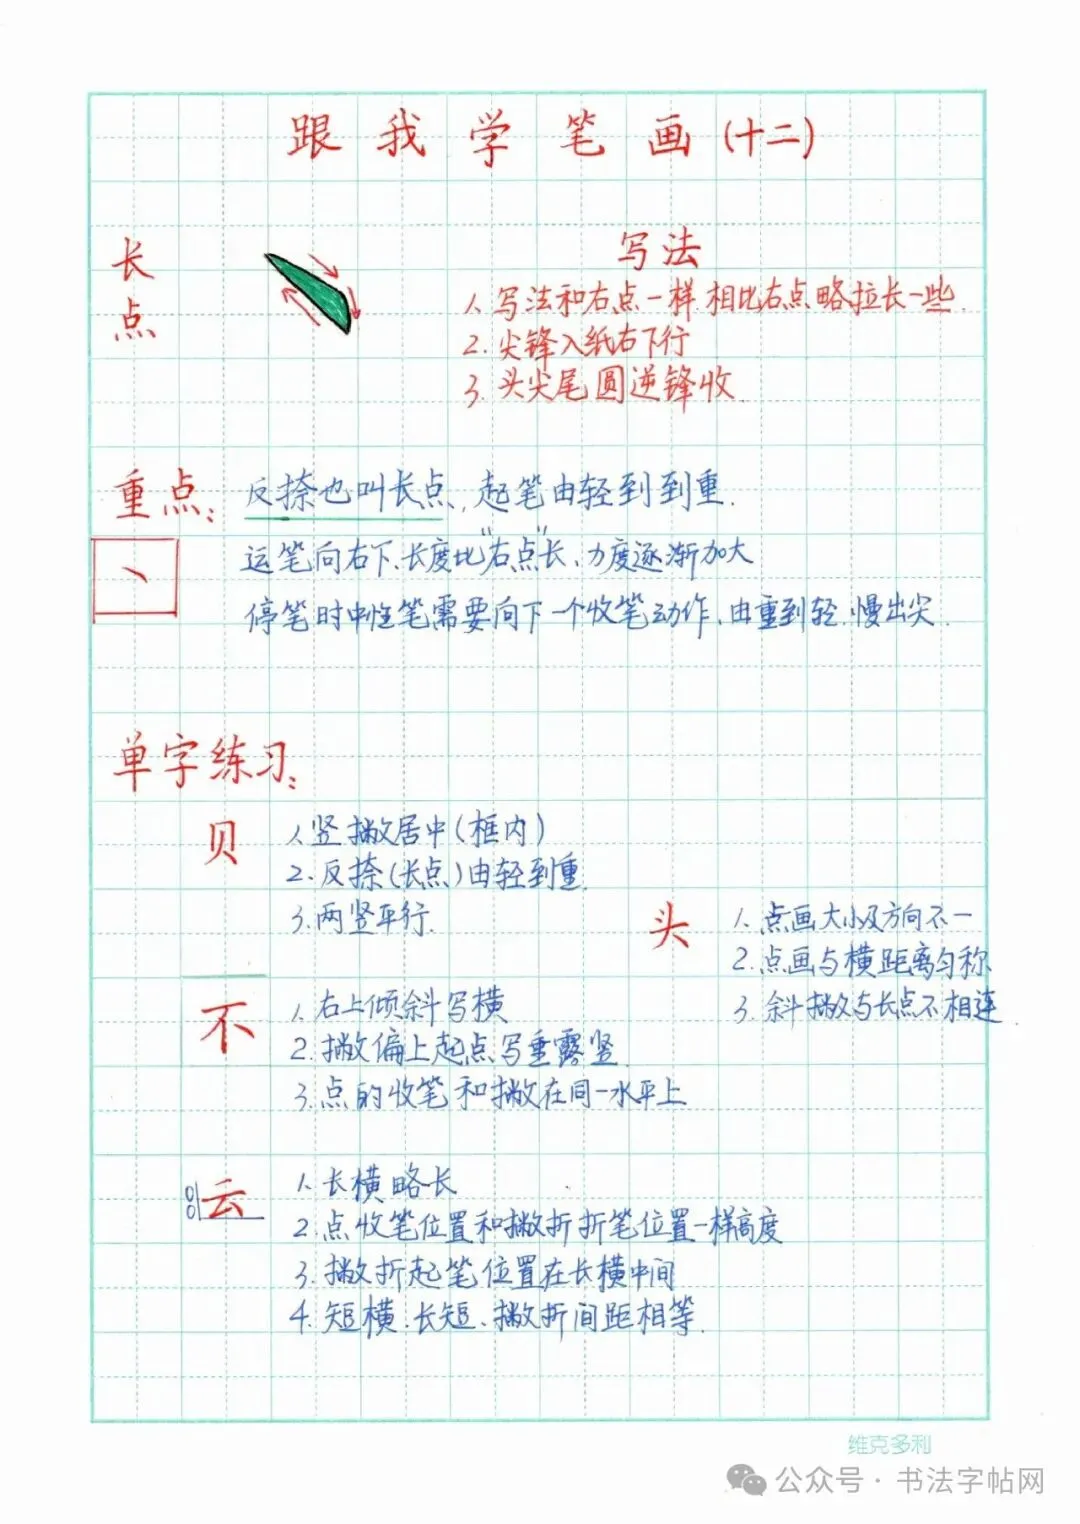 跟我学笔画(十二)
长点
写法
1. 写法和右点一样 相比右点略拉长一些.
2. 尖锋入纸右下行
3. 头尖尾圆逆锋收.
重点:
反捺也叫长点, 起笔由轻到到重.
运笔向右下、长度比"右点"长、力度逐渐加大
停笔时中性笔需要向下一个收笔动作、由重到轻.慢出尖.
单字练习:
贝
1. 竖撇居中(框内)
2. 反捺(长点)由轻到重.
3. 两竖平行.
头
1. 点画大小及方向不一
2. 点画与横距离匀称
3. 斜撇与长点不相连
不
1. 右上倾斜写横
2. 撇偏上起点写垂露竖.
3. 点的收笔和撇在同一水平上
云
1. 长横略长
2. 点收笔位置和撇折折笔位置一样高度
3. 撇折起笔位置在长横中间
4. 短横.长短、撇折间距相等.
维克多利
公众号·书法字帖网